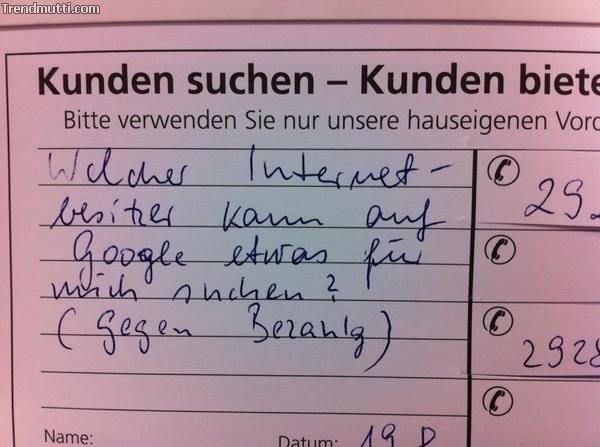 Trendmutti.com
Kunden suchen – Kunden biete
Bitte verwenden Sie nur unsere hauseigenen Vord
Welcher Internet-
besitzer kann auf
Google etwas für
mich suchen?
(gegen Bezahlg)
292
2928
Name:
Datum: 19